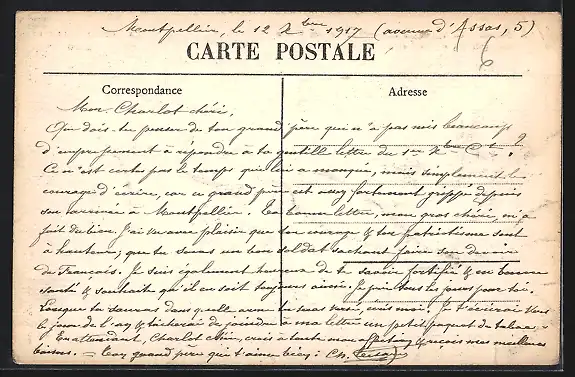 Montpellier, le 12 Xbre 1917 (avenue d'Assas, 5)
CARTE POSTALE
6
Correspondance
Adresse
Mon Charlot chéri,
Que dois-tu penser de ton grand père qui n'a pas mis beaucoup
d'empressement à répondre à ta gentille lettre du 1er Xbre Ct ?
Ce n'est certes pas le temps qui lui a manqué, mais simplement le
courage d'écrire, car ce grand père est assez fortement grippé depuis
son arrivée à Montpellier. Ta bonne lettre, mon gros chéri, m'a
fait du bien. J'ai vu avec plaisir que ton courage & ton patriotisme sont
à hauteur; que tu seras un bon soldat sachant faire son devoir
de Français. Je suis également heureux de te savoir fortifié & en bonne
santé & souhaite qu'il en soit toujours ainsi. Je prie tous les jours pour toi.
Lorsque tu sauras dans quelle arme tu seras versé, écris-moi. Je t'écrirai vers
le jour de l'an & tâcherai de joindre à ma lettre un petit paquet de tabac.
En attendant, Charlot chéri, crois à toute mon affection & reçois mes meilleurs
baisers. Ton grand père qui t'aime bien: Ch.